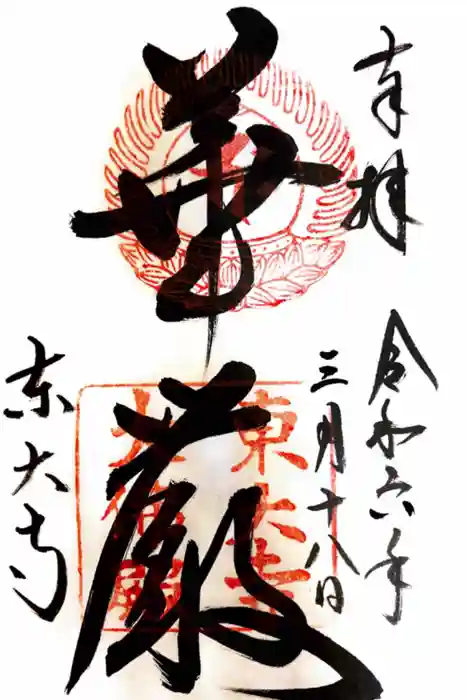 奉拝
令和六年
三月十八日
華厳
東大寺
東大寺
大佛殿